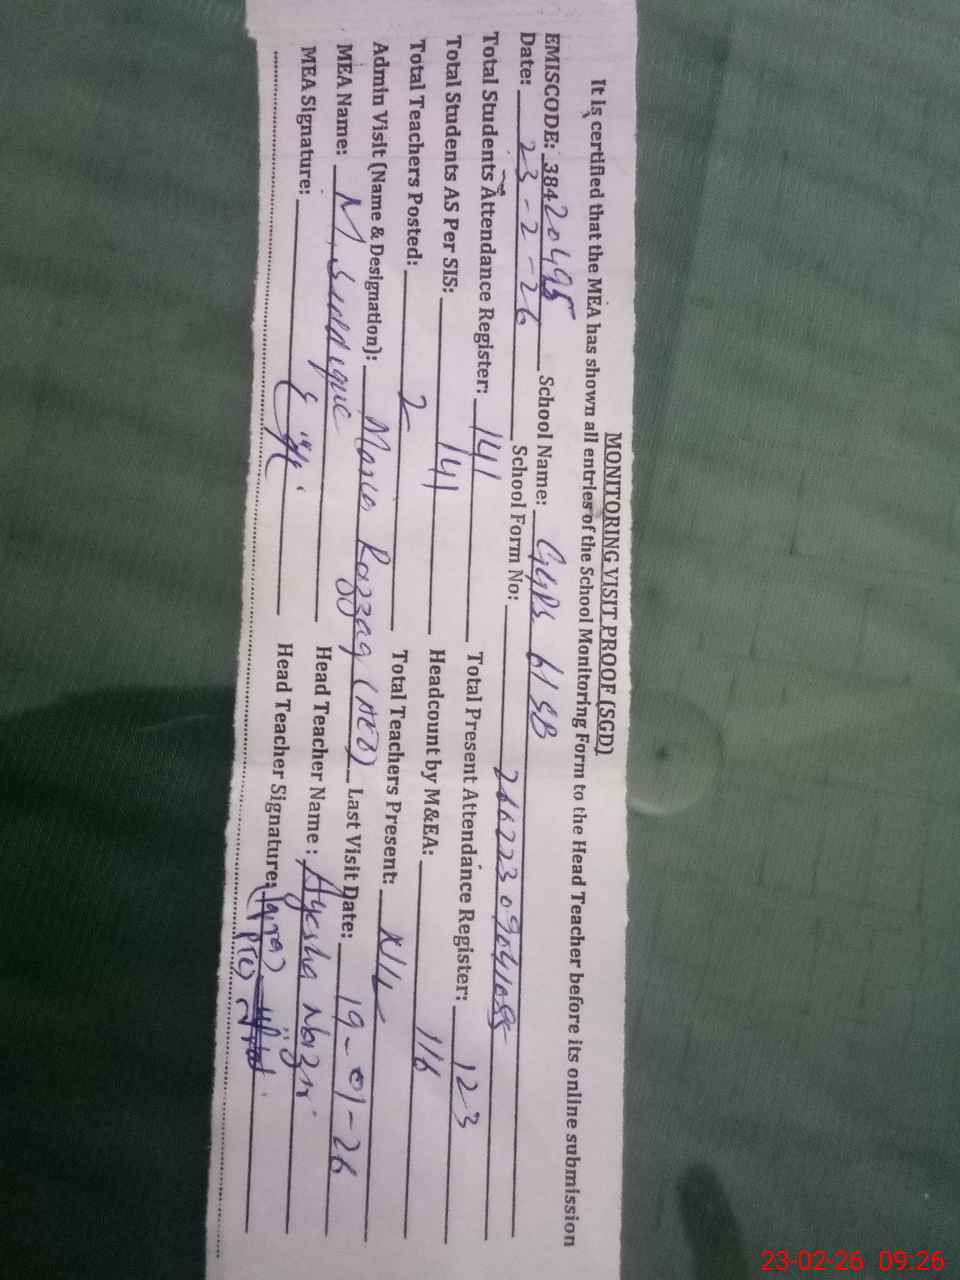 MONITORING VISIT PROOF (SGD)
It is certified that the MEA has shown all entries of the School Monitoring Form to the Head Teacher before its online submission
EMISCODE: 38420495 School Name: GGPS 61 SB
Date: 23-2-26 School Form No:
Total Students Attendance Register: 141 Total Present Attendance Register: 123
Total Students AS Per SIS: 141 Headcount by M&EA: 116
Total Teachers Posted: 2 Total Teachers Present: NIL
Admin Visit (Name & Designation): Razzaq (AEO) Last Visit Date: 19-01-26
MEA Name: M. Siddique Head Teacher Name: Ayesha
MEA Signature: Head Teacher Signature:
23-02-26 09:26